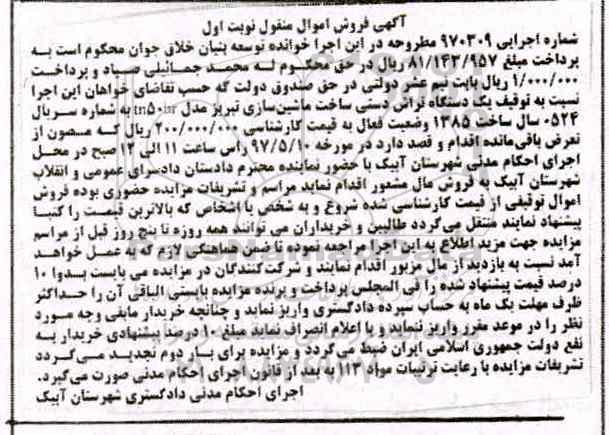 آگهی فروش اموال منقول نوبت اول
شماره اجرایی ۹۷۰۳۰۹ مطروحه در این اجرا خوانده توسعه بنیان خلاق جوان محکوم است به
پرداخت مبلغ ۸۱/۱۴۳/۹۵۷ ریال در حق محکوم له محمد جمائیلی صیاد و پرداخت
۱/۰۰۰/۰۰۰ ریال بابت نیم عشر دولتی در حق صندوق دولت که حسب تقاضای خواهان این اجرا
نسبت به توقیف یک دستگاه تراش دستی ساخت ماشین‌سازی تبریز مدل tn5۰ به شماره سریال
۰۵۲۴ سال ساخت ۱۳۸۵ وضعیت فعال به قیمت کارشناسی ۲۰۰/۰۰۰/۰۰۰ ریال که مصون از
تعرض باقی‌مانده اقدام و قصد دارد در مورخه ۹۷/۵/۱۰ راس ساعت ۱۱ الی ۱۲ صبح در محل
اجرای احکام مدنی شهرستان آبیک با حضور نماینده محترم دادستان دادسرای عمومی و انقلاب
شهرستان آبیک به فروش مال مشعور اقدام نماید مراسم و تشریفات مزایده حضوری بوده فروش
اموال توقیفی از قیمت کارشناسی شده شروع و به شخص یا اشخاص که بالاترین قیمت را کتبا
پیشنهاد نمایند منتقل می‌گردد طالبین و خریداران می توانند همه روزه تا پنج روز قبل از مراسم
مزایده جهت مزید اطلاع به این اجرا مراجعه نموده تا ضمن هماهنگی لازم که به عمل خواهد
آمد نسبت به بازدید از مال مزبور اقدام نمایند و شرکت‌کنندگان در مزایده می بایست بدوا ۱۰
درصد قیمت پیشنهاد شده را فی المجلس پرداخت و برنده مزایده بایستی الباقی آن را حداکثر
ظرف مهلت یک ماه به حساب سپرده دادگستری واریز نماید و چنانچه خریدار مابقی وجه مورد
نظر را در موعد مقرر واریز ننماید و یا اعلام انصراف نماید مبلغ ۱۰ درصد پیشنهادی خریدار به
نفع دولت جمهوری اسلامی ایران ضبط می‌گردد و مزایده برای بار دوم تجدید می‌گردد
تشریفات مزایده با رعایت ترتیبات مواد ۱۱۳ به بعد از قانون اجرای احکام مدنی صورت می‌گیرد.
اجرای احکام مدنی دادگستری شهرستان آبیک